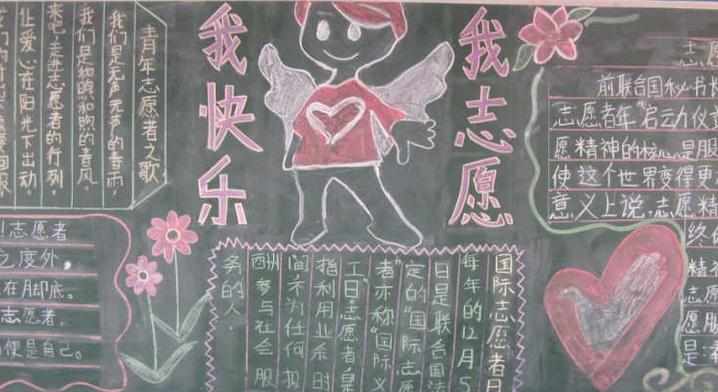 青年志愿者之歌
我们是无声无声的春雨,
我们是和暖和煦的春风,
来吧,走进志愿者的行列,
让爱心在阳光下出动,
我志愿
我快乐
志愿者
之度外,
在脚底.
志愿者,
便是自己。
国际志愿者日
每年的12月5
日是联合国法
定的“国际志愿
者”亦称“国际义
工日”志愿者是
指利用业余时
间不为任何报
酬参与社会服
务的人.
志愿
前联合国秘书长
志愿者年“启动仪式
愿精神的核心是服
使这个世界变得更
意义上说,志愿精
终
精
志愿
愿服
是